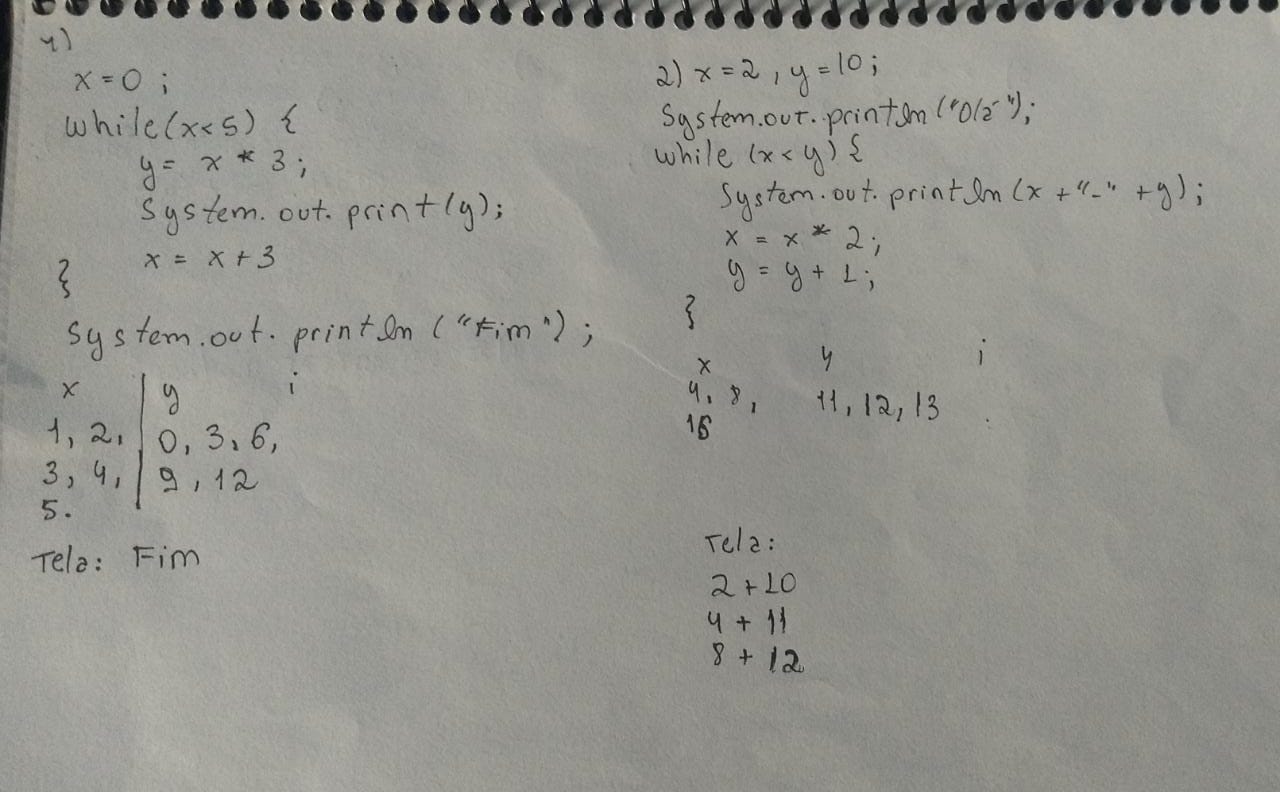 1)
x = 0 ;
while(x<5) {
y = x * 3 ;
System.out.print(y);
x = x + 3
}
System.out.println ("Fim") ;
x | y i
1, 2, | 0, 3, 6,
3, 4, | 9, 12
5.
Tela: Fim
2) x = 2 , y = 10 ;
System.out.println ("Ola");
while (x < y) {
System.out.println (x + "-" + y) ;
x = x * 2 ;
y = y + 1 ;
}
x y i
4, 8, 11, 12, 13
16
Tela:
2 + 10
4 + 11
8 + 12